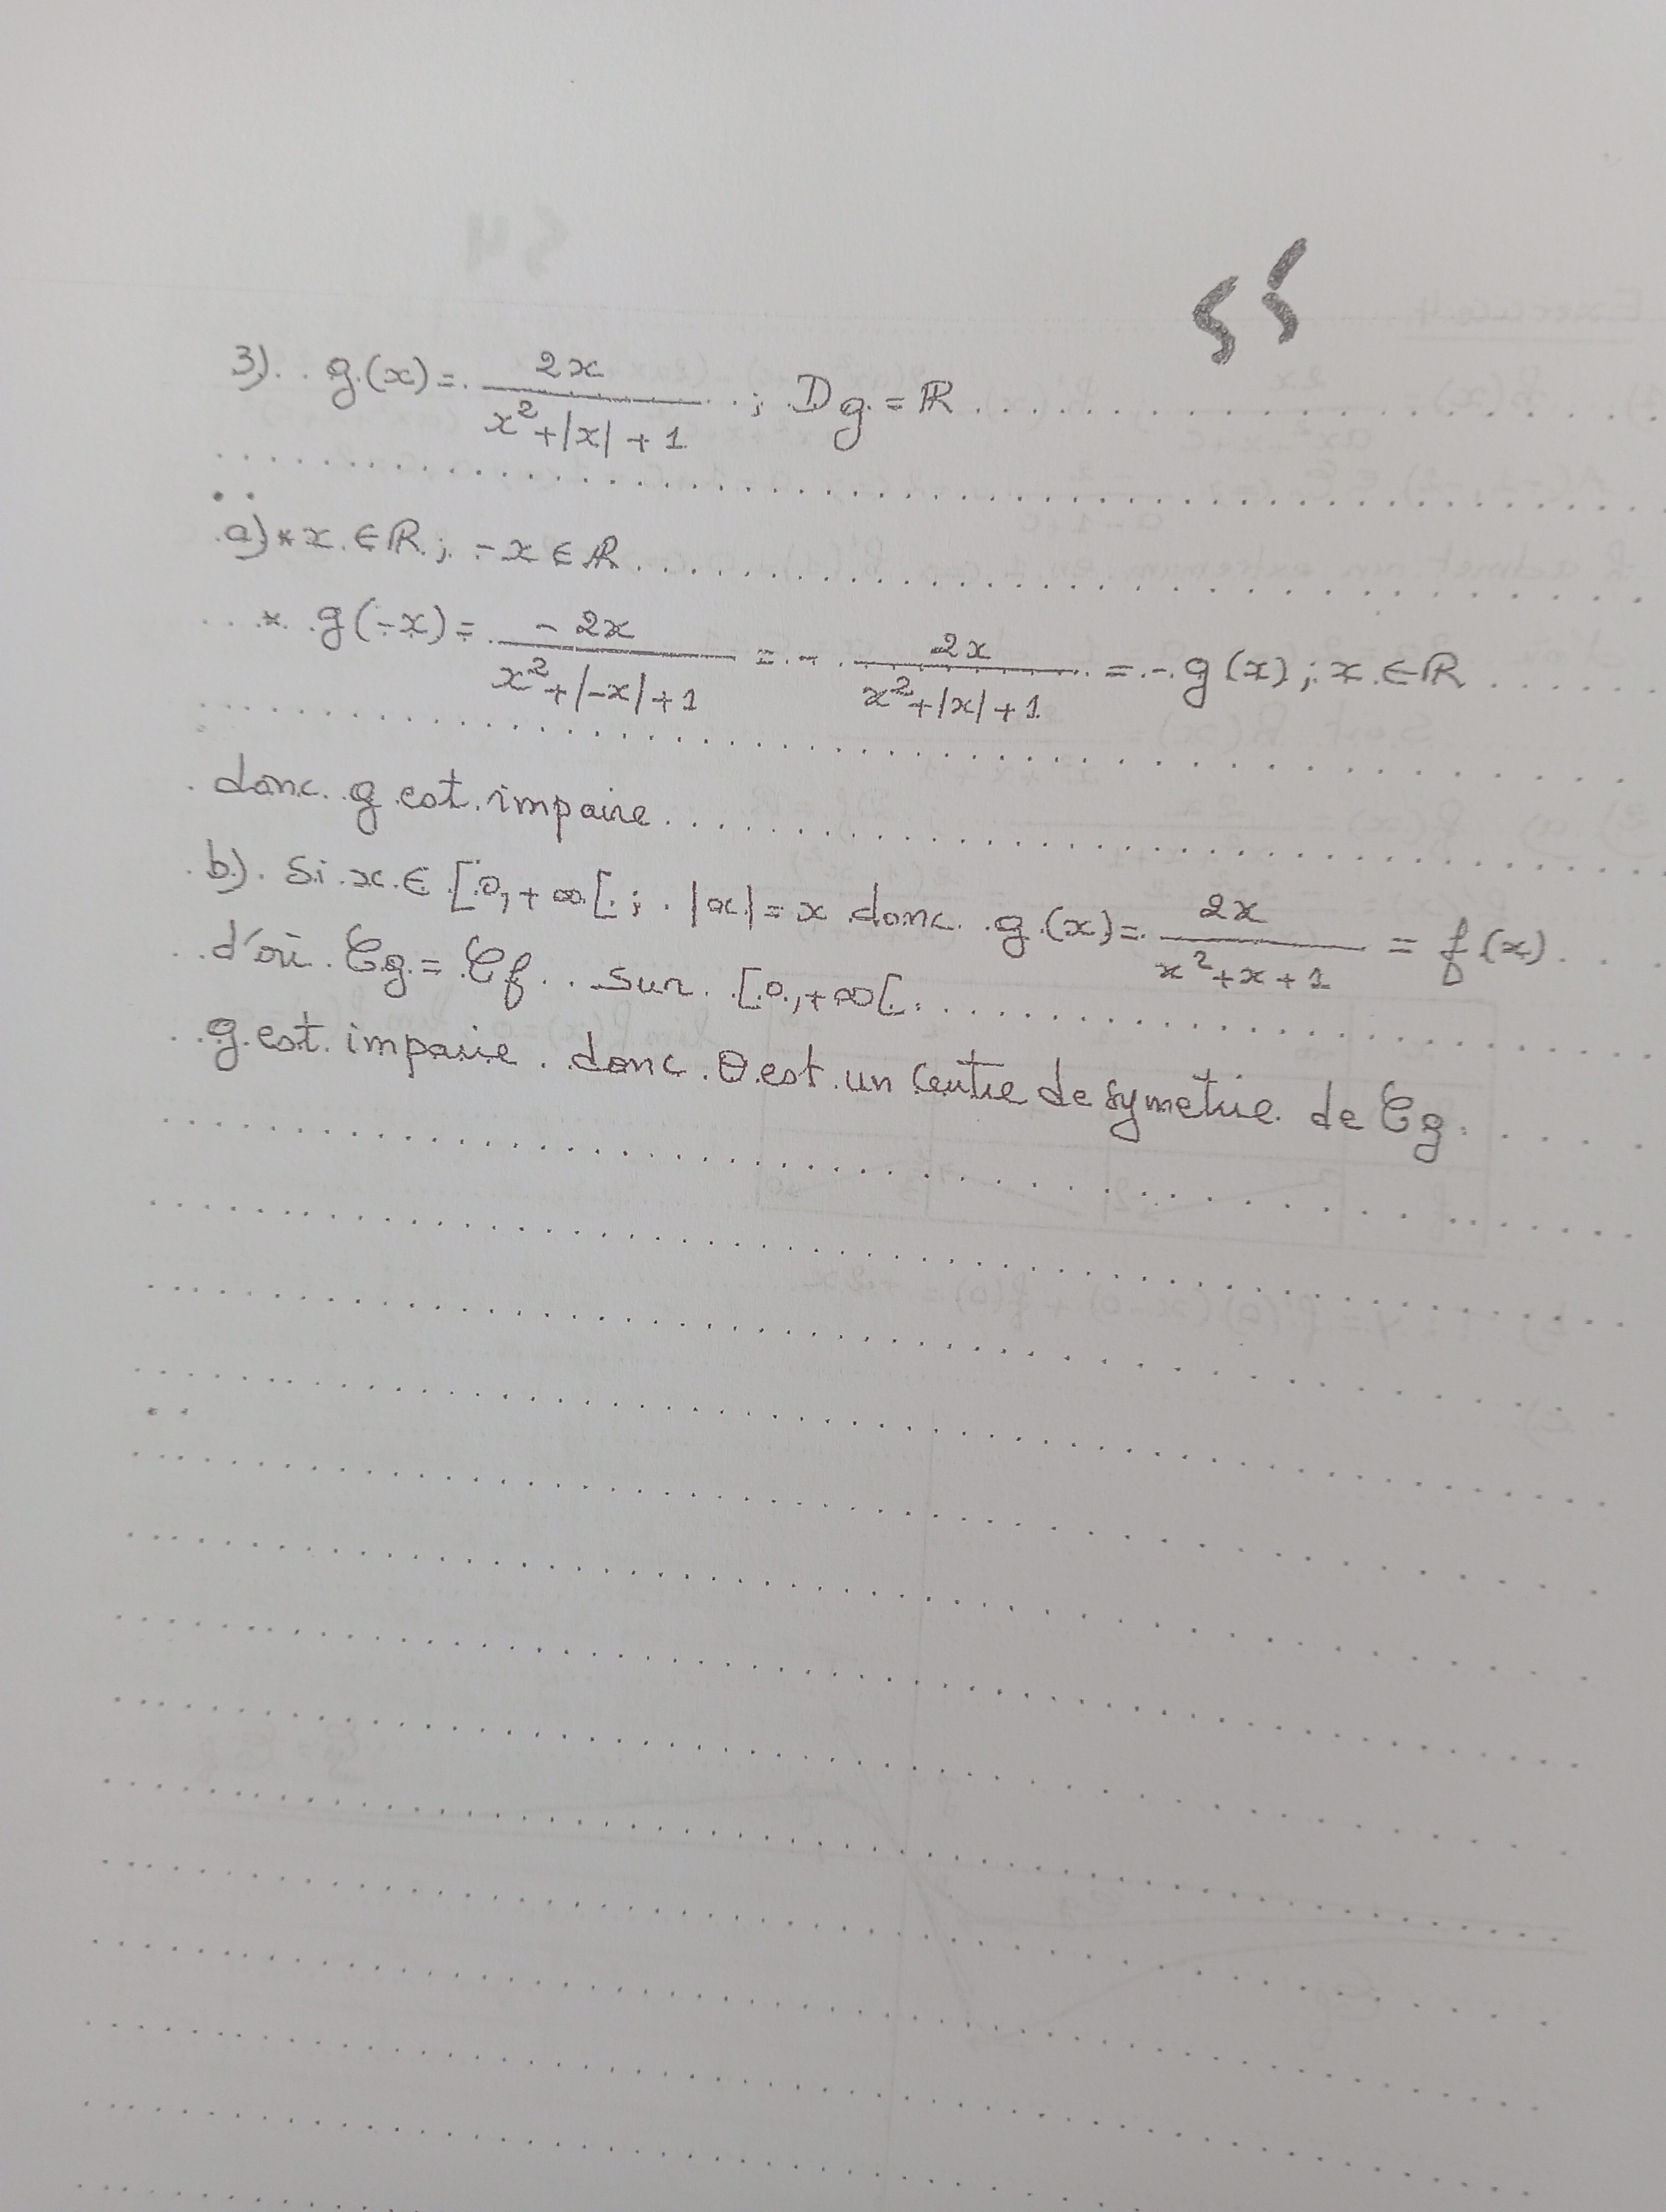 55
3) g(x) = 2x / (x² + |x| + 1) ; Dg = ℝ
a) * x ∈ ℝ ; -x ∈ ℝ
* g(-x) = -2x / (x² + |-x| + 1) = - 2x / (x² + |x| + 1) = - g(x) ; x ∈ ℝ
donc g est impaire
b) Si x ∈ [0, +∞[ ; |x| = x donc g(x) = 2x / (x² + x + 1) = f(x)
d'où Cg = Cf sur [0, +∞[
g est impaire donc O est un centre de symetrie de Cg